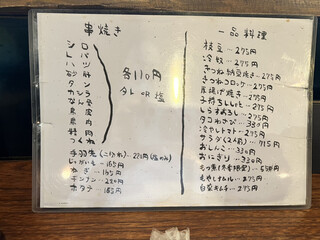 串焼き
シロ
レバ
ハツ
砂肝
タン
カシラ
なんこつ
つくね
各110円
タレ or 塩
手羽先(二切れ)…220円(塩のみ)
じゃがいも…165円
ねぎ…165円
ギンナン…220円
ホタテ…165円
一品料理
枝豆…275円
冷奴…275円
きつね納豆焼き…275円
きつねコロッケ…275円
厚揚げ焼き…275円
子持ちししゃも…275円
しらすおろし…275円
タコわさび…330円
冷やしトマト…275円
サラダ(2人前)…715円
おしんこ…330円
おにぎり…330円
もやしナムル…275円
白菜キムチ…275円